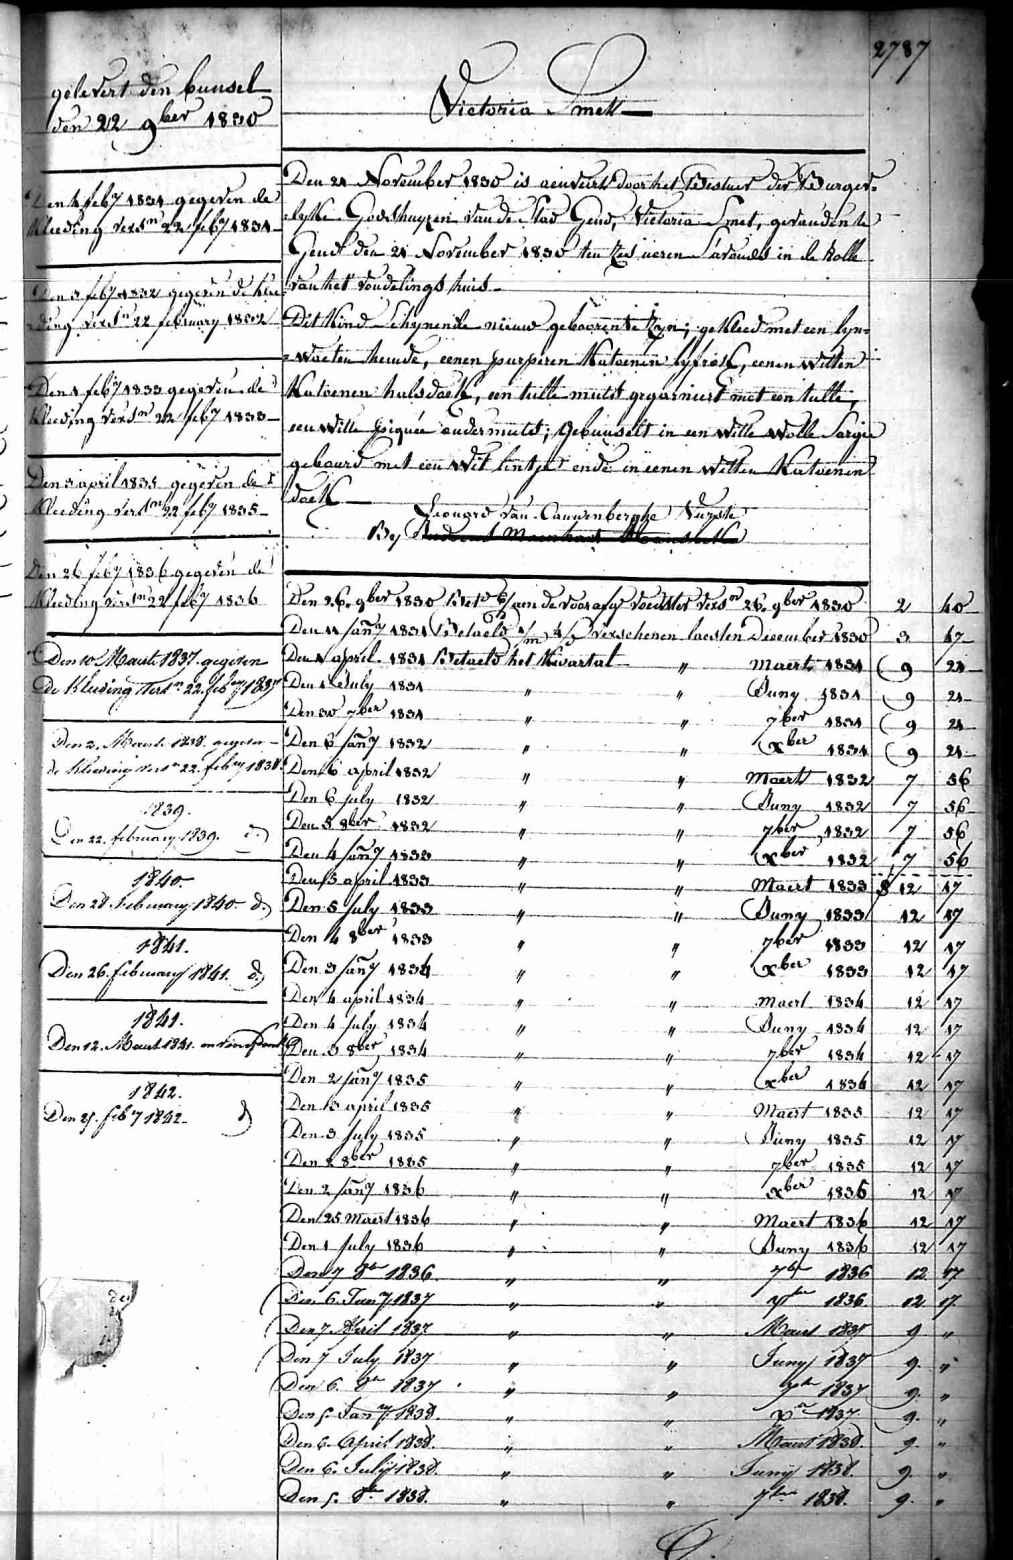 2787
Victoria Smet
gelevert den bunsel
den 22 9ber 1830
Den 4 feby 1831 gegeven de
kleeding versn 22 feby 1831
Den 3 feby 1832 gegeven de klee
ding versn 22 february 1832
Den 1 feby 1833 gegeven de
kleeding versn 22 feby 1833
Den 3 april 1835 gegeven de
kleeding versn 22 feby 1835
Den 26 feby 1836 gegeven de
kleeding versn 22 feby 1836
Den 10 Maert 1837 gegeven
de kleeding versn 22 feby 1837
Den 2 Maert 1838 gegeven
de kleeding versn 22 feby 1838
1839.
Den 22 february 1839.
1840.
Den 28 february 1840 do
1841.
Den 26 february 1841. do
1841.
Den 12 Maert 1841.
1842.
Den 25 feby 1842. do
Den 21 November 1830 is aenveird door het Bestuer der Burger-
lyke Godshuyzen van de Stad Gend, Victoria Smet, gevonden te
Gend den 21 November 1830 ten zes ueren s'avonds in de Rolle
van het vondelings huis
Dit Kind schynende nieuw geboren te zyn; gekleed met een lyn-
waeten hemde, eenen purperen Katoenen lyfrok, eenen witten
Katoenen halsdoek, een tulle mutst gegarneert met een tulle,
een witte piquée ondermutst; gebunselt in een witte wolle Sargie
geboord met een wit lintje ende in eenen witten Katoenen
doek
Leonard van Cauwenberghe
By
Den 26 9ber 1830 Betd aen de voorafge voedster versn 26 9ber 1830 2 40
Den 11 Jany 1831 Betaeld verschenen laesten December 1830 3 47
Den 1 april 1831 Betaeld het Kwartal " Maert 1831 9 21
Den 1 July 1831 " " Juny 1831 9 21
Den 30 7ber 1831 " " 7ber 1831 9 21
Den 6 Jany 1832 " " xber 1831 9 21
Den 6 april 1832 " " Maert 1832 7 56
Den 6 July 1832 " " Juny 1832 7 56
Den 5 8ber 1832 " " 7ber 1832 7 56
Den 4 Jany 1833 " " xber 1832 7 56
Den 5 april 1833 " " Maert 1833 12 17
Den 5 July 1833 " " Juny 1833 12 17
Den 4 8ber 1833 " " 7ber 1833 12 17
Den 3 Jany 1834 " " xber 1833 12 17
Den 4 april 1834 " " Maert 1834 12 17
Den 4 July 1834 " " Juny 1834 12 17
Den 3 8ber 1834 " " 7ber 1834 12 17
Den 2 Jany 1835 " " xber 1834 12 17
Den 3 april 1835 " " Maert 1835 12 17
Den 3 July 1835 " " Juny 1835 12 17
Den 2 8ber 1835 " " 7ber 1835 12 17
Den 2 Jany 1836 " " xber 1835 12 17
Den 25 Maert 1836 " " Maert 1836 12 17
Den 1 July 1836 " " Juny 1836 12 17
Den 7 8br 1836 " " 7br 1836 12 17
Den 6 Jany 1837 " " 1836 12 17
Den 7 April 1837 " " Maert 1837 9 "
Den 7 July 1837 " " Juny 1837 9 "
Den 6 8br 1837 " " 7br 1837 9 "
Den 5 Jany 1838. " " xr 1837 9 "
Den 6 April 1838. " " Maert 1838. 9 "
Den 6 July 1838. " " Juny 1838. 9 "
Den 5 8br 1838. " " 7br 1838. 9 "